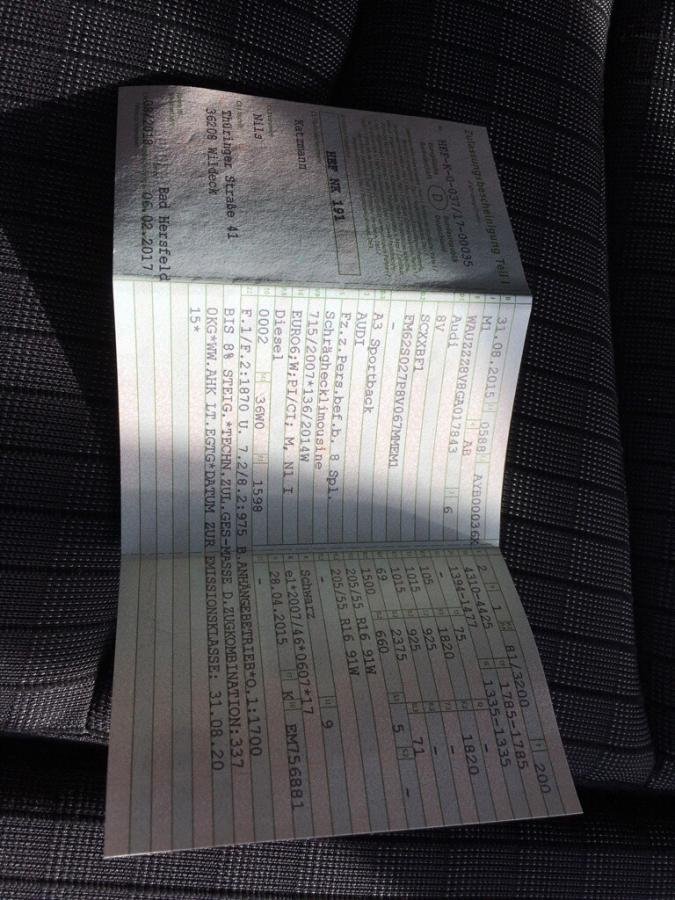 Zulassungsbescheinigung Teil I
HEF-K-0-037/17-00035
D
HEF NK 191
Katzmann
Nils
Thüringer Straße 41
36208 Wildeck
Bad Hersfeld
06.02.2017
31.08.2015 0588
M1 AB AYB00036
WAUZZZ8V8GA017843 6
Audi
8V
SCXXBF1
FM62S027P8V067MMEM1
-
A3 Sportback
AUDI
Fz.z.Pers.bef.b. 8 Spl.
Schräghecklimousine
715/2007*136/2014W
EURO6;W;PI/CI; M, N1 I
Diesel
0002 36W0 1598
2 1 81/3200 200
4310-4425 1785-1785
1394-1477 75 1335-1335
- 1820 - 1820
105 925 - -
1015 925 71
1015 2375 5 -
69 660
1500
205/55 R16 91W
205/55 R16 91W
- 9
Schwarz
e1*2007/46*0607*17
28.04.2015 K EM756881
-
F.1/F.2:1870 U. 7.2/8.2:975 B.ANHÄNGEBETRIEB*O.1:1700
BIS 8% STEIG.*TECHN.ZUL.GES-MASSE D.ZUGKOMBINATION:337
0KG*WW.AHK LT.EGTG*DATUM ZUR EMISSIONSKLASSE: 31.08.20
15*